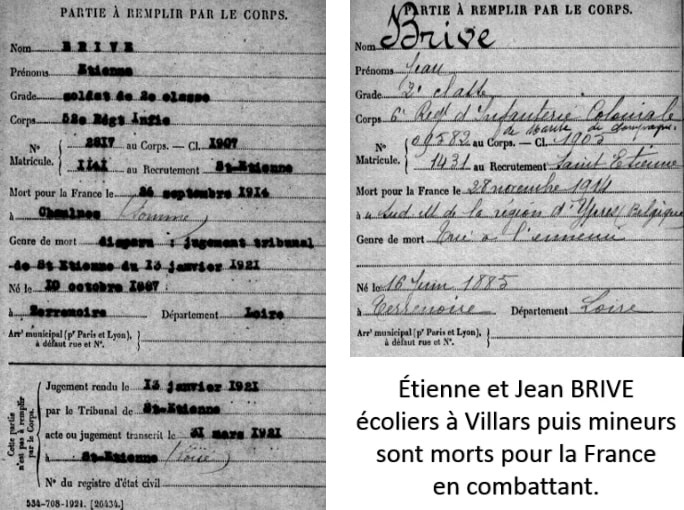 PARTIE À REMPLIR PAR LE CORPS.
Nom BRIVE
Prénoms Etienne
Grade soldat de 2e classe
Corps 52e Régt Infie
N° 2817 au Corps. — Cl. 1907
Matricule. 1141 au Recrutement St-Etienne
Mort pour la France le 26 septembre 1914
à Chaulnes (Somme)
Genre de mort disparu : jugement tribunal
de St Etienne du 13 janvier 1921
Né le 10 octobre 1887
à Terrenoire Département Loire
Arr' municipal (p' Paris et Lyon),
à défaut rue et N°.
Cette partie n'est pas à remplir par le Corps.
Jugement rendu le 13 janvier 1921
par le Tribunal de St-Etienne
acte ou jugement transcrit le 31 mars 1921
à St-Etienne (Loire)
N° du registre d'état civil
534-708-1921. [26434.]
PARTIE À REMPLIR PAR LE CORPS.
Nom Brive
Prénoms Jean
Grade 2e classe
Corps 6e Regt d'Infanterie Coloniale
de marche de
N° 00582 au Corps. — Cl. 1905
Matricule. 1431 au Recrutement Saint Etienne
Mort pour la France le 28 novembre 1914
à Sud de la région d'Ypres (Belgique)
Genre de mort Tué à l'ennemi
Né le 16 Juin 1885
à Terrenoire Département Loire
Arr' municipal (p' Paris et Lyon),
à défaut rue et N°.
Étienne et Jean BRIVE
écoliers à Villars puis mineurs
sont morts pour la France
en combattant.